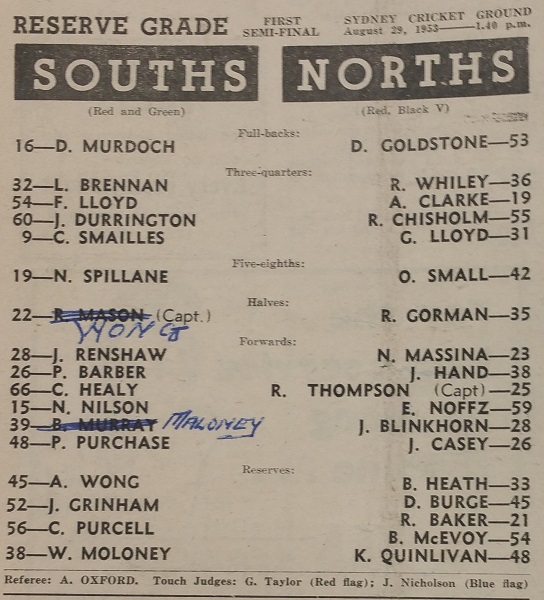 RESERVE GRADE FIRST SEMI-FINAL SYDNEY CRICKET GROUND August 29, 1953—1.40 p.m.
SOUTHS NORTHS
(Red and Green) (Red, Black V)
Full-backs:
16—D. MURDOCH D. GOLDSTONE—53
Three-quarters:
32—L. BRENNAN R. WHILEY—36
54—F. LLOYD A. CLARKE—19
60—J. DURRINGTON R. CHISHOLM—55
9—C. SMAILLES G. LLOYD—31
Five-eighths:
19—N. SPILLANE O. SMALL—42
Halves:
22—R. MASON (Capt.) R. GORMAN—35
WONG
Forwards:
28—J. RENSHAW N. MASSINA—23
26—P. BARBER J. HAND—38
66—C. HEALY R. THOMPSON (Capt)—25
15—N. NILSON E. NOFFZ—59
39—B. MURRAY MALONEY J. BLINKHORN—28
48—P. PURCHASE J. CASEY—26
Reserves:
45—A. WONG B. HEATH—33
52—J. GRINHAM D. BURGE—45
56—C. PURCELL R. BAKER—21
B. McEVOY—54
38—W. MOLONEY K. QUINLIVAN—48
Referee: A. OXFORD. Touch Judges: G. Taylor (Red flag); J. Nicholson (Blue flag)